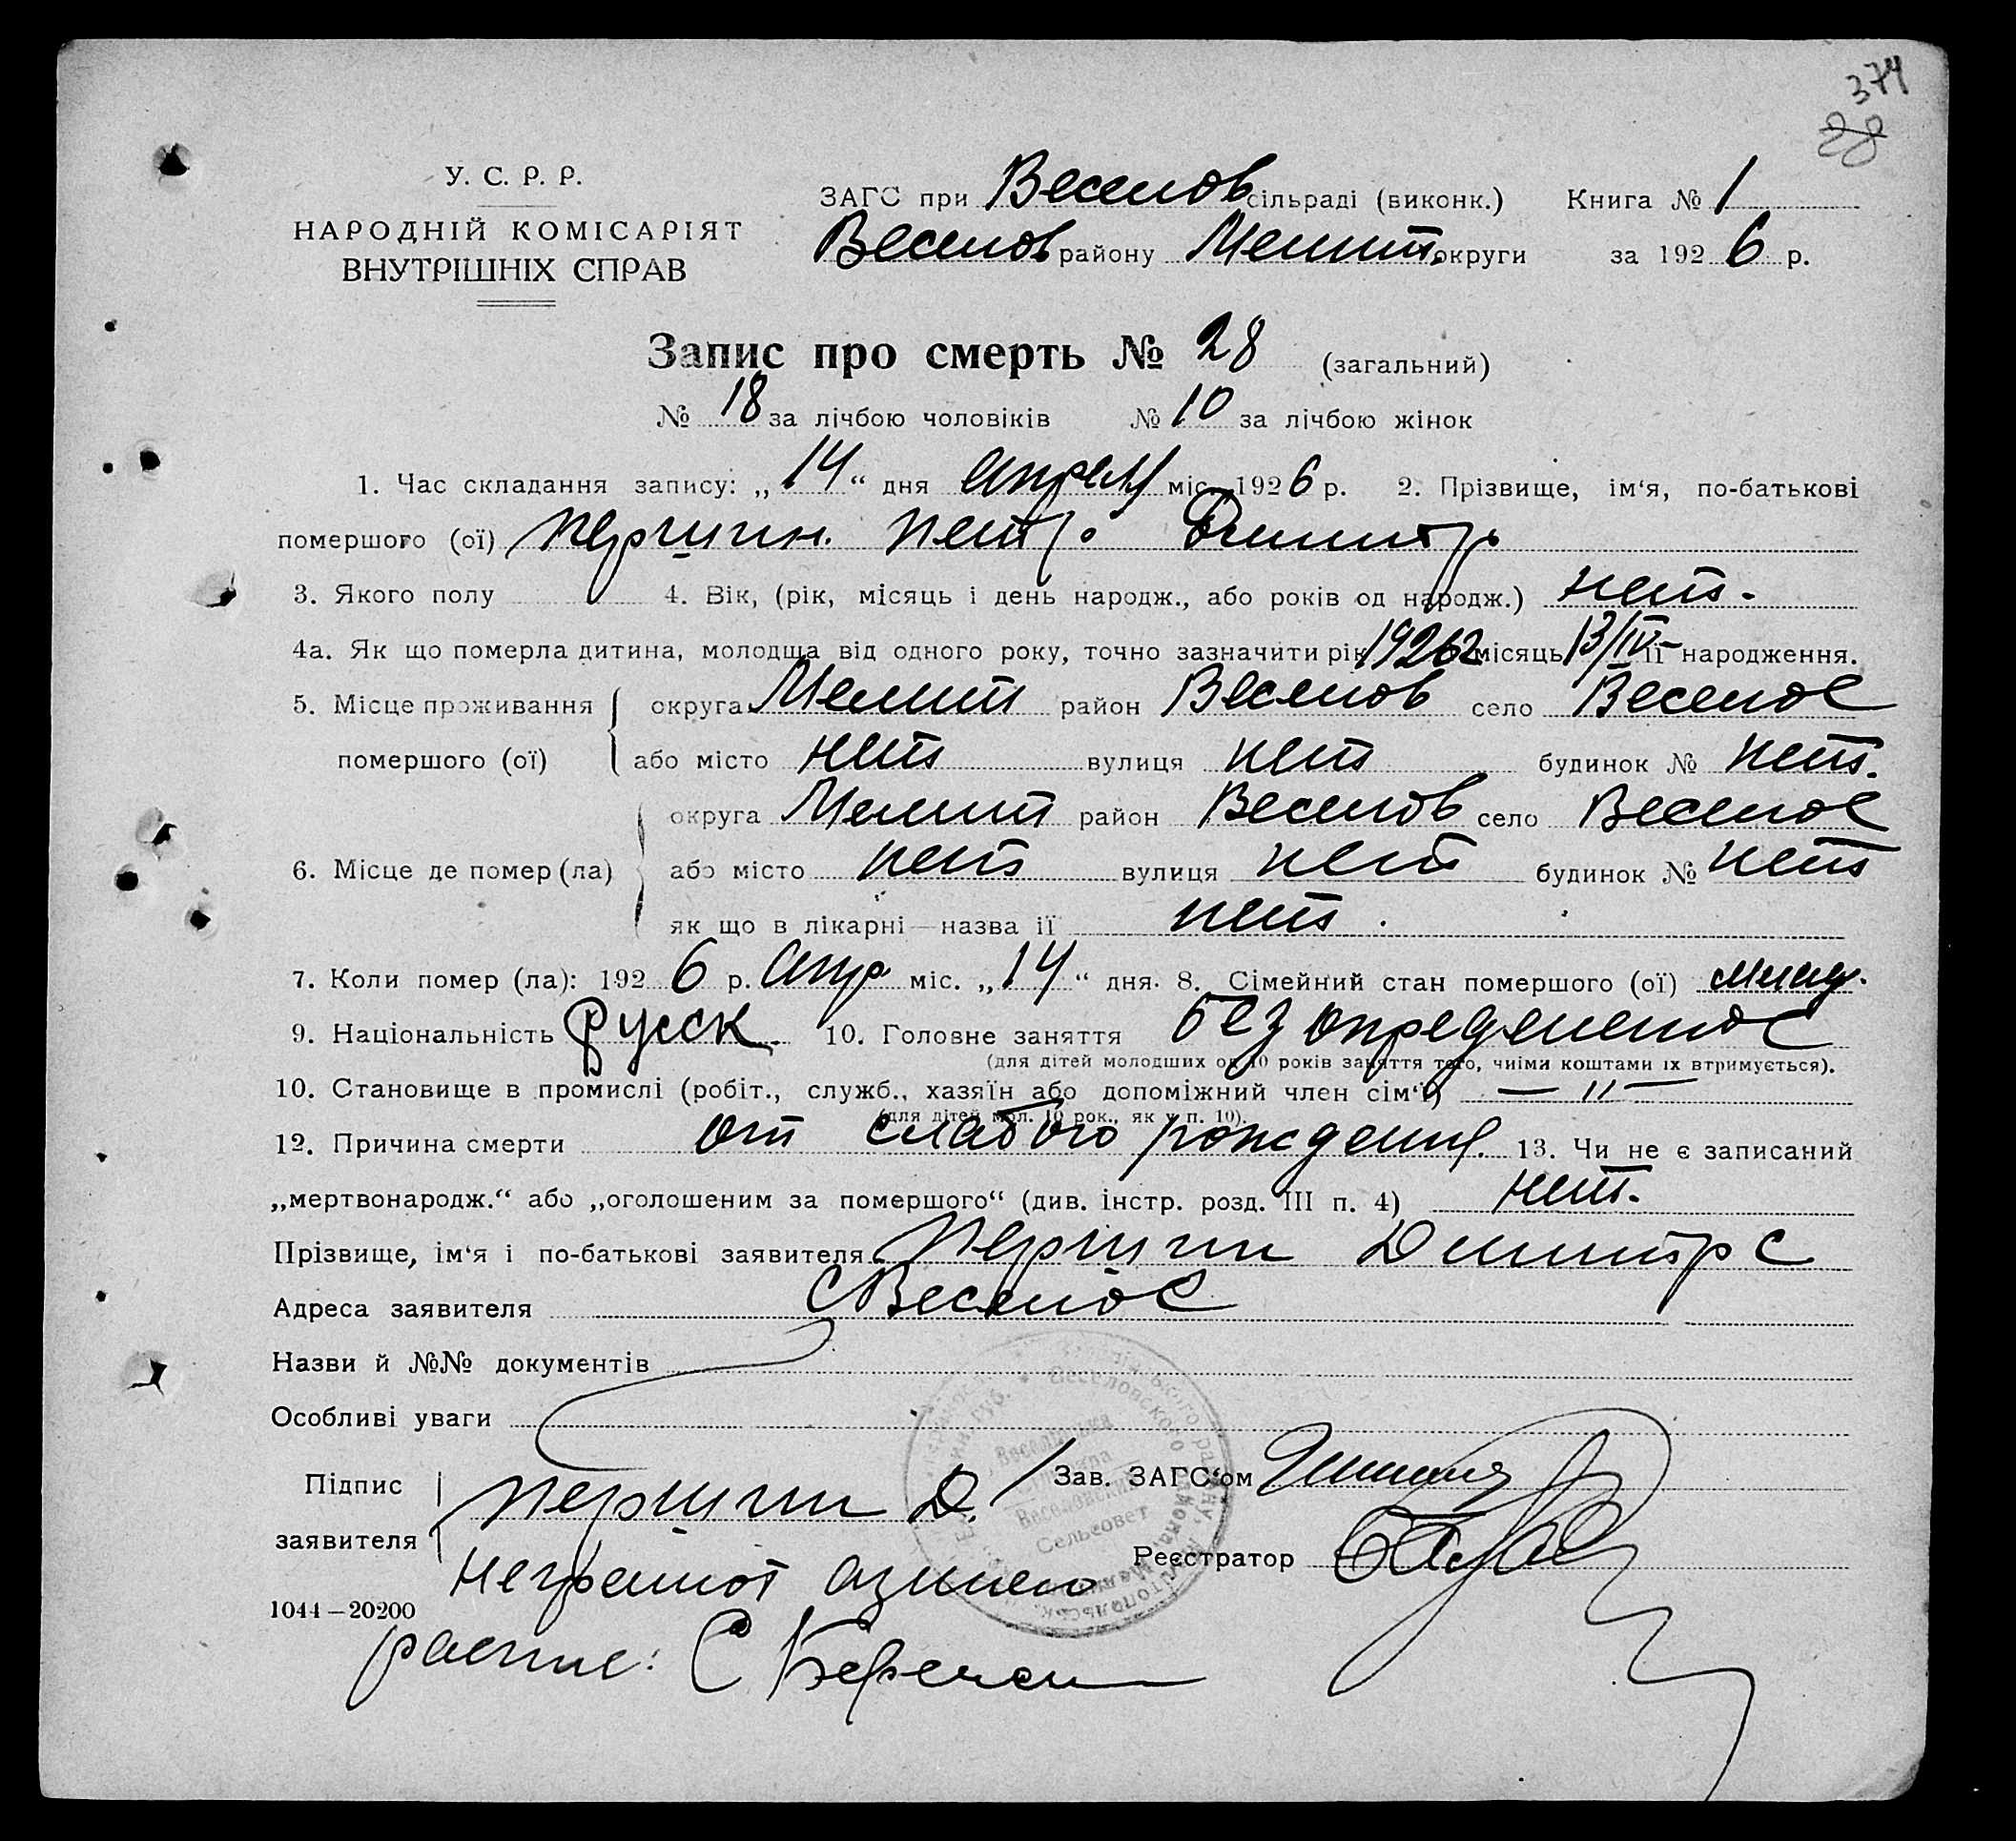 374
28
У. С. Р. Р.
НАРОДНІЙ КОМІСАРІЯТ
ВНУТРІШНІХ СПРАВ
ЗАГС при Веселов сільраді (виконк.) Книга № 1
Веселов району Мелит. округи за 1926 р.
Запис про смерть № 28 (загальний)
№ 18 за лічбою чоловіків № 10 за лічбою жінок
1. Час складання запису: „14“ дня апреля міс. 1926 р. 2. Прізвище, ім‘я, по-батькові
помершого (ої) Першин. Петр. Димитр
3. Якого полу 4. Вік, (рік, місяць і день народж., або років од народж.) нет.
4а. Як що померла дитина, молодща від одного року, точно зазначити рік 1926 місяць 13/IV її народження.
5. Місце проживання округа Мелит район Веселов село Веселое
помершого (ої) або місто нет вулиця нет будинок № нет.
округа Мелит район Веселов село Веселое
6. Місце де помер (ла) або місто нет вулиця нет будинок № нет
як що в лікарні—назва її нет.
7. Коли помер (ла): 1926 р. Апр міс. „14“ дня. 8. Сімейний стан помершого (ої) млад.
9. Національність Русск. 10. Головне заняття без определенное
(для дітей молодших од 10 років заняття того, чиїми коштами їх втримується).
10. Становище в промислі (робіт., служб., хазяїн або допоміжний член сім‘ї) — „ —
(для дітей мол. 10 рок., як у п. 10).
12. Причина смерти от слабого рождения. 13. Чи не є записаний
„мертвонародж.“ або „оголошеним за помершого“ (див. інстр. розд. III п. 4) нет.
Прізвище, ім‘я і по-батькові заявителя Першин Димитр С
Адреса заявителя С Веселое
Назви й №№ документів
Особливі уваги
Підпис Першин Д. Зав. ЗАГС‘ом
заявителя неграмот Реєстратор
1044—20200
Веселовский
Сельсовет